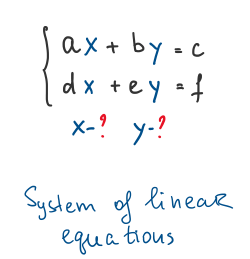 ax + by = c
dx + ey = f
x-? y-?
System of linear
equations